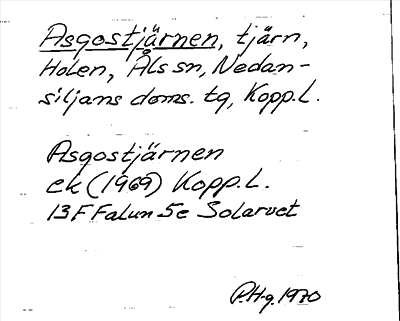 Asgostjärnen, tjärn,
Holen, Åls sn, Nedan-
siljans doms. tg, Kopp.L.
Asgostjärnen
ek (1969) Kopp.L.
13F Falun 5e Solarvet
P.H-g. 1970